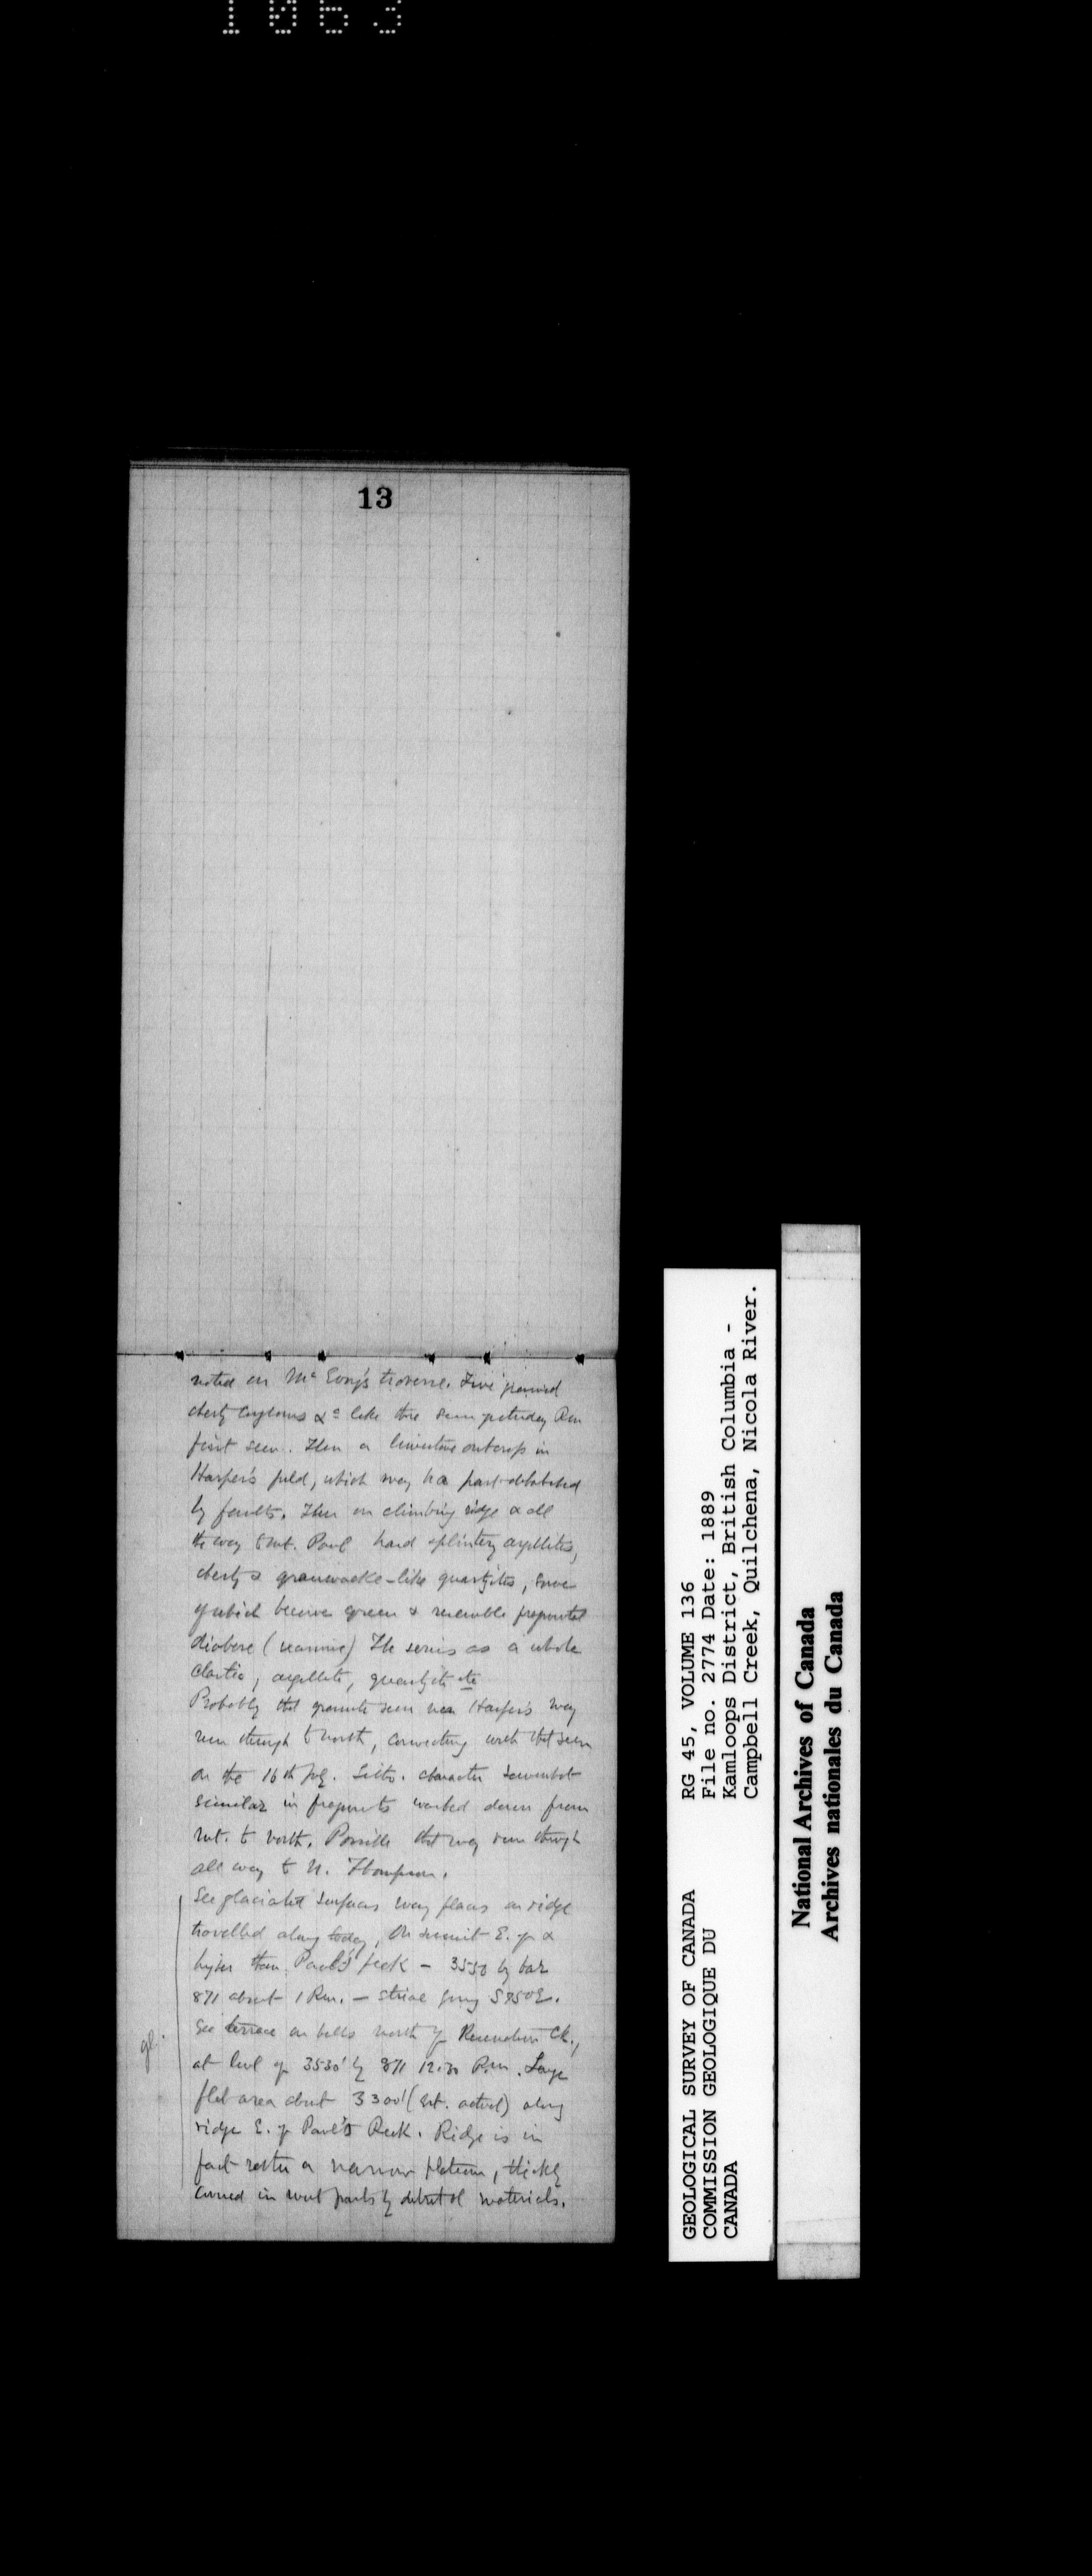 1063
13
noted on McEvoy's traverse. Fine grained
cherty &c like those seen yesterday P.m
first seen. Then a limestone outcrop in
Harper's field, which may be a part detached
by faults. Then on climbing ridge & all
the way to Mt. Paul hard splintery argillites,
cherty & grauwacke-like quartzites, some
of which become green & resemble fragmental
diabase (examine) The series as a whole
clastic, argillite, quartzite etc
Probably that granite seen near Harper's may
run through to north, connecting with that seen
on the 16th July. Litho. character somewhat
similar in fragments washed down from
Mt. to north. Possible that may run through
all way to N. Thompson.
See glaciated surfaces many places on ridge
travelled along today, On summit E. of &
higher than Paul's peak - 3550 by bar
871 about 1 P.m. - striae going
See terrace on hills north of Reservation Ck.,
at level of 3530' by 871 12.30 P.m. Large
flat area about 3300' (est. actual) along
ridge E. of Paul's Peak. Ridge is in
fact rather a narrow plateau, thickly
covered in most parts by detrital materials.
gl.
GEOLOGICAL SURVEY OF CANADA
COMMISSION GEOLOGIQUE DU
CANADA
RG 45, VOLUME 136
File no. 2774 Date: 1889
Kamloops District, British Columbia -
Campbell Creek, Quilchena, Nicola River.
National Archives of Canada
Archives nationales du Canada